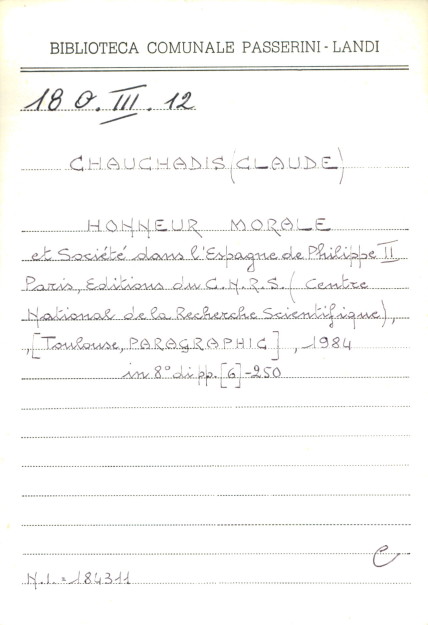 BIBLIOTECA COMUNALE PASSERINI - LANDI
18 0. III. 12
CHAUCHADIS (CLAUDE)
HONNEUR MORALE
et Société dans l'Espagne de Philippe II
Paris, Editions du C.N.R.S. ( Centre
National de la Recherche Scientifique),
,[Toulouse, PARAGRAPHIC] , 1984
in 8° di pp. [6]-250
e
N.I. = 184311